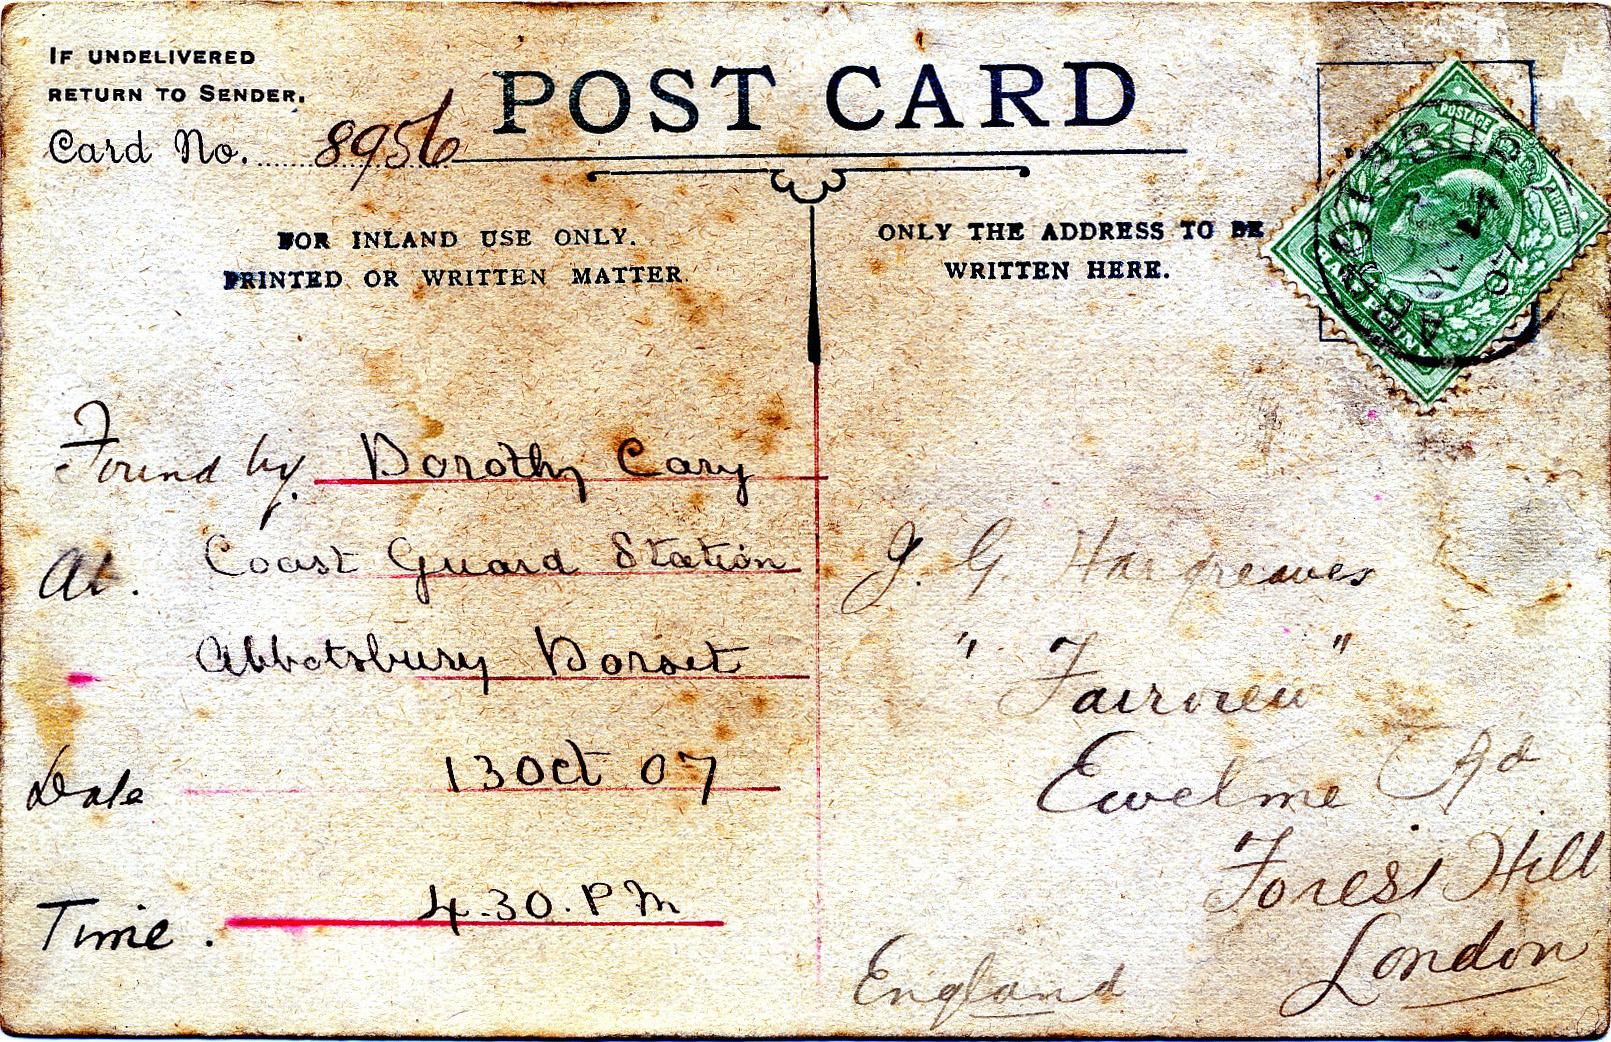 IF UNDELIVERED
RETURN TO SENDER.
Card No. 8956
POST CARD
FOR INLAND USE ONLY.
PRINTED OR WRITTEN MATTER
ONLY THE ADDRESS TO BE
WRITTEN HERE.
POSTAGE
Found by Dorothy Cary
At. Coast Guard Station
Abbotsbury Dorset
Date 13 Oct 07
Time. 4.30. P M
J. G. Hargreaves
" Fairview "
Ewelme Rd
Forest Hill
London
England